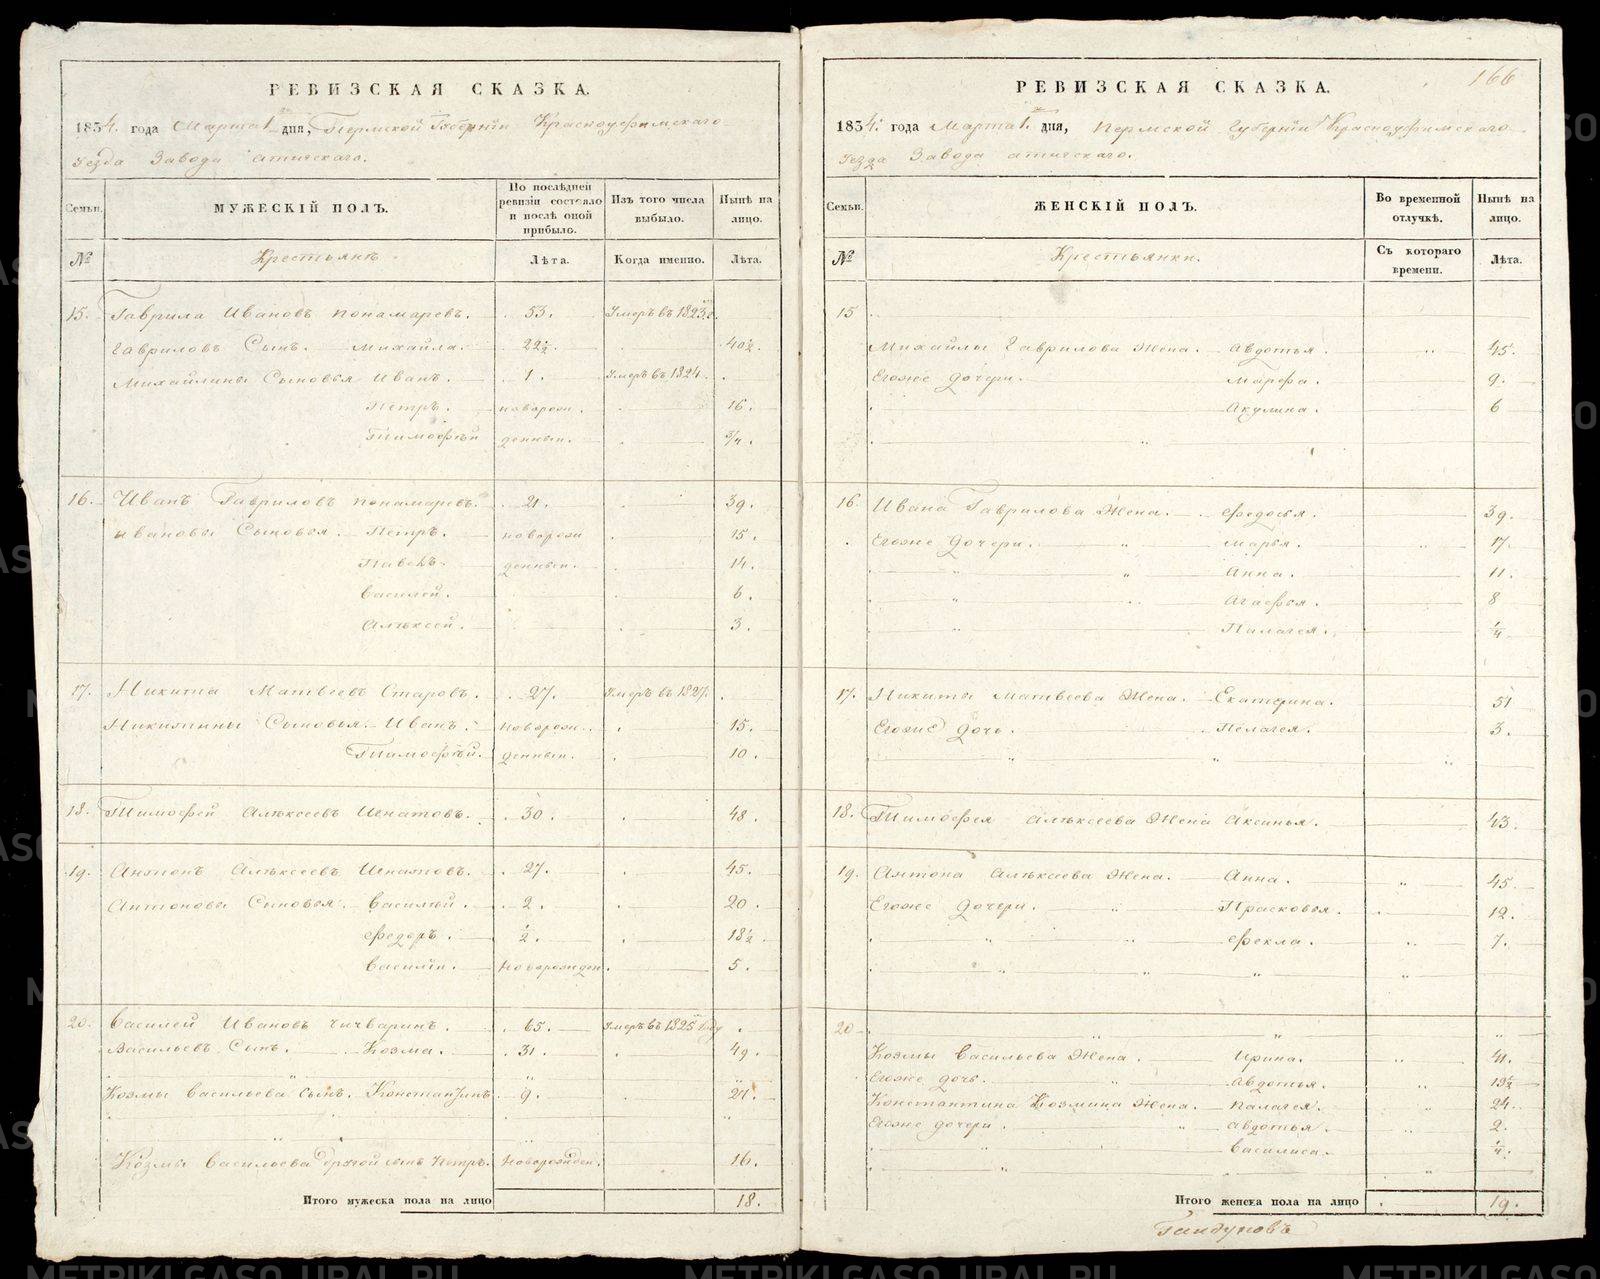 РЕВИЗСКАЯ СКАЗКА.
1834. года Марта 1. дня, Пермской Губернии Красноуфимскаго
уезда Завода атигскаго.
Семьи.
МУЖЕСКІЙ ПОЛЪ.
По послѣдней ревизіи состояло и послѣ оной прибыло.
Изъ того числа выбыло.
Нынѣ на лицо.
№
Крестьянъ
Лѣта.
Когда именно.
Лѣта.
15. Гаврила Ивановъ пономаревъ. 53. Умеръ въ 1823.
Гавриловъ Сынъ. михайла. 22½. 40½.
Михайлины Сыновья Иванъ. 1. Умеръ въ 1824.
Петръ. новорож. 16.
Тимофѣй денныи. ¾.
16. Иванъ Гавриловъ пономаревъ. 21. 39.
ивановы Сыновья. Петръ. новорож 15.
Павелъ. денныи. 14.
Василей. 6.
Алѣксей. 3.
17. Никита Матвеевъ Старовъ. 27. Умеръ въ 1827.
Никитины Сыновья. Иванъ. новорож. 15.
Тимофѣй. денныи. 10.
18. Тимофей Алѣксеевъ Игнатовъ. 30. 48.
19. Антонъ Алѣксеевъ Игнатовъ. 27. 45.
Антоновы Сыновья. Василѣй. 2. 20.
федоръ. ½. 18½.
Василѣи. Новорожден. 5.
20. Василей Ивановъ чичваринъ. 65. Умеръ въ 1825 году
Васильевъ Сынъ. Козма. 31. 49.
Козмы Васильева сынъ. Константинъ 9. 27.
Козмы Васильева другой сынъ Петръ. Новорожден. 16.
Итого мужеска пола на лицо 18.
166
РЕВИЗСКАЯ СКАЗКА.
1834. года Марта 1. дня, Пермской Губернии Красноуфимскаго
уезда Завода атигскаго.
Семьи.
ЖЕНСКІЙ ПОЛЪ.
Во временной отлучкѣ.
Нынѣ на лицо.
№
Крестьянки.
Съ котораго времени.
Лѣта.
15
Михайлы Гаврилова Жена. авдотья. 45.
Егоже дочери. марфа. 9.
Акулина. 6
16. Ивана Гаврилова Жена. федосья. 39.
Егоже дочери. марья. 17.
Анна. 11.
Агафья. 8
Пилагея. ¼
17. Никиты матвеева Жена. Екатерина. 51
Егоже дочь. Пелагея. 3.
18. Тимофея Алѣксеева Жена Аксинья. 43.
19. Антона Алѣксева Жена. Анна. 45.
Егоже дочери. Прасковья. 12.
фекла. 7.
20
Козмы Васильева Жена. ирина. 41.
Егоже дочь. авдотья. 19½
Константина Козмина Жена. палагея. 24.
Егоже дочери. авдотья. 2.
Василиса. ¼.
Итого женска пола на лицо 19.
METRIKI.GASO-URAL.RU
METRIKI.GASO-URAL.RU